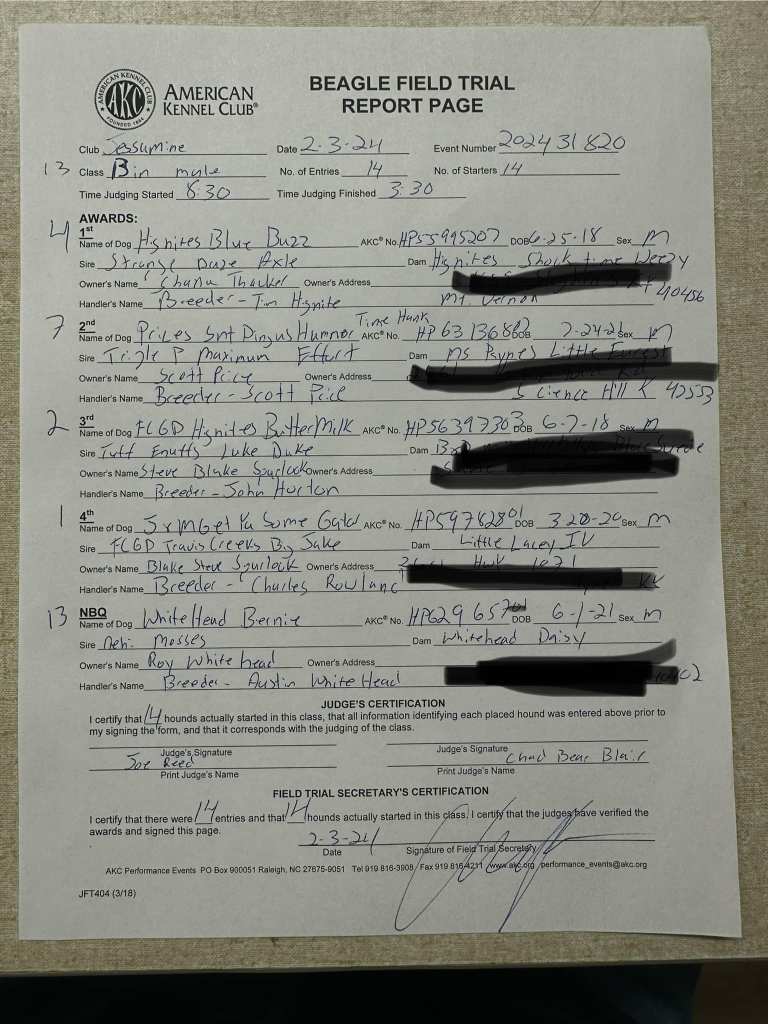 AMERICAN KENNEL CLUB
AKC
FOUNDED 1884
AMERICAN
KENNEL CLUB®
BEAGLE FIELD TRIAL
REPORT PAGE
Club Jessumine Date 2-3-24 Event Number 2024 31 820
13 Class 13 in male No. of Entries 14 No. of Starters 14
Time Judging Started 8:30 Time Judging Finished 3:30
AWARDS:
4 1st
Name of Dog Hignites Blue Buzz AKC® No. HP55995207 DOB 6-25-18 Sex M
Sire Strange Daze Axle Dam Hignites Shock time Weezy
Owner's Name Owner's Address
Handler's Name Breeder - Tim Hignite Mt. Vernon 40456
Time Hank
7 2nd
Name of Dog Prices Smt AKC® No. HP 63136802 Sex M
Sire P Maximum Effort Dam Ms Paynes Little
Owner's Name Scott Price Owner's Address
Handler's Name Breeder - Scott Price Science Hill K 42553
2 3rd
Name of Dog FCGD Hignites ButterMilk AKC® No. HP56397303 DOB 6-7-18 Sex M
Sire Tuff Enuffs Luke Duke Dam
Owner's Name Steve Blake Spurlock Owner's Address
Handler's Name Breeder - John Horton
1 4th
Name of Dog J&M Get Ya Some Gator AKC® No. HP59782801 DOB 3 20-20 Sex M
Sire FCGD Travis Creeks Big Jake Dam Little Lacey IV
Owner's Name Blake Steve Spurlock Owner's Address Hwy 1071
Handler's Name Breeder - Charles Rowland KY
13 NBQ
Name of Dog WhiteHead Bernie AKC® No. HP629657 DOB 6-1-21 Sex M
Sire Neh. Mosses Dam Whitehead Daisy
Owner's Name Roy White head Owner's Address
Handler's Name Breeder - Austin White Head
JUDGE'S CERTIFICATION
I certify that 14 hounds actually started in this class, that all information identifying each placed hound was entered above prior to
my signing the form, and that it corresponds with the judging of the class.
Judge's Signature Judge's Signature
Joe Reed Chad Bear Blair
Print Judge's Name Print Judge's Name
FIELD TRIAL SECRETARY'S CERTIFICATION
I certify that there were 14 entries and that 14 hounds actually started in this class. I certify that the judges have verified the
awards and signed this page.
2-3-24
Date Signature of Field Trial Secretary
AKC Performance Events PO Box 900051 Raleigh, NC 27675-9051 Tel 919 816-3908 Fax 919 816-4211 www.akc.org performance_events@akc.org
JFT404 (3/18)